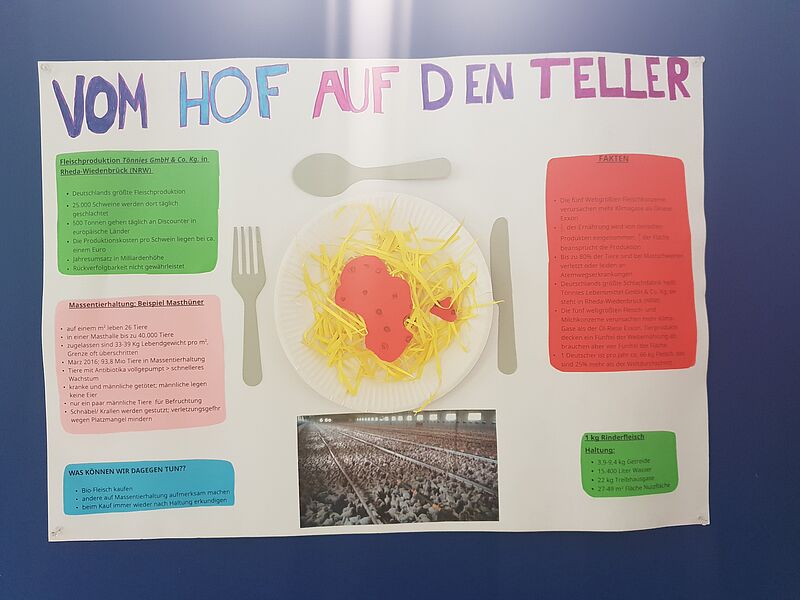 VOM HOF AUF DEN TELLER
Fleischproduktion Tönnies GmbH & Co. Kg. in
Rheda-Wiedenbrück (NRW)
• Deutschlands größte Fleischproduktion
• 25.000 Schweine werden dort täglich
geschlachtet
• 500 Tonnen gehen täglich an Discounter in
europäische Länder
• Die Produktionskosten pro Schwein liegen bei ca.
einem Euro
• Jahresumsatz in Milliardenhöhe
• Rückverfolgbarkeit nicht gewährleistet
Massentierhaltung: Beispiel Masthüner
• auf einem m² leben 26 Tiere
• in einer Masthalle bis zu 40.000 Tiere
• zugelassen sind 33-39 Kg Lebendgewicht pro m²,
Grenze oft überschritten
• März 2016; 93,8 Mio Tiere in Massentierhaltung
• Tiere mit Antibiotika vollgepumpt > schnelleres
Wachstum
• kranke und männliche getötet; männliche legen
keine Eier
• nur ein paar männliche Tiere für Befruchtung
• Schnäbel/ Krallen werden gestutzt; verletzungsgefhr
wegen Platzmangel mindern
WAS KÖNNEN WIR DAGEGEN TUN??
• Bio Fleisch kaufen
• andere auf Massentierhaltung aufmerksam machen
• beim Kauf immer wieder nach Haltung erkundigen
FAKTEN
• Die fünf Weltgrößten Fleischkonzerne
verursachen mehr Klimagase als Ölriese
Exxon
der Ernährung wird von tierischen
Produkten eingenommen, der Fläche
beansprucht die Produktion
• Bis zu 80% der Tiere sind bei Mastschweinen
verletzt oder leiden an
Atemwegserkrankungen
• Deutschlands größte Schlachtfabrik heißt
Tönnies Lebensmittel GmbH & Co. Kg, es
steht in Rheda-Wiedenbrück (NRW)
• Die fünf weltgrößten Fleisch- und
Milchkonzerne verursachen mehr Klima-
Gase als der Öl-Riese Exxon. Tierprodukte
decken ein Fünftel der Welternährung ab,
brauchen aber vier Fünftel der Fläche.
• 1 Deutscher isst pro Jahr ca. 60 kg Fleisch, das
sind 25% mehr als der Weltdurchschnitt
1 kg Rinderfleisch
Haltung:
• 3,9-9,4 kg Getreide
• 15.400 Liter Wasser
• 22 kg Treibhausgase
• 27-49 m² Fläche Nutzfläche